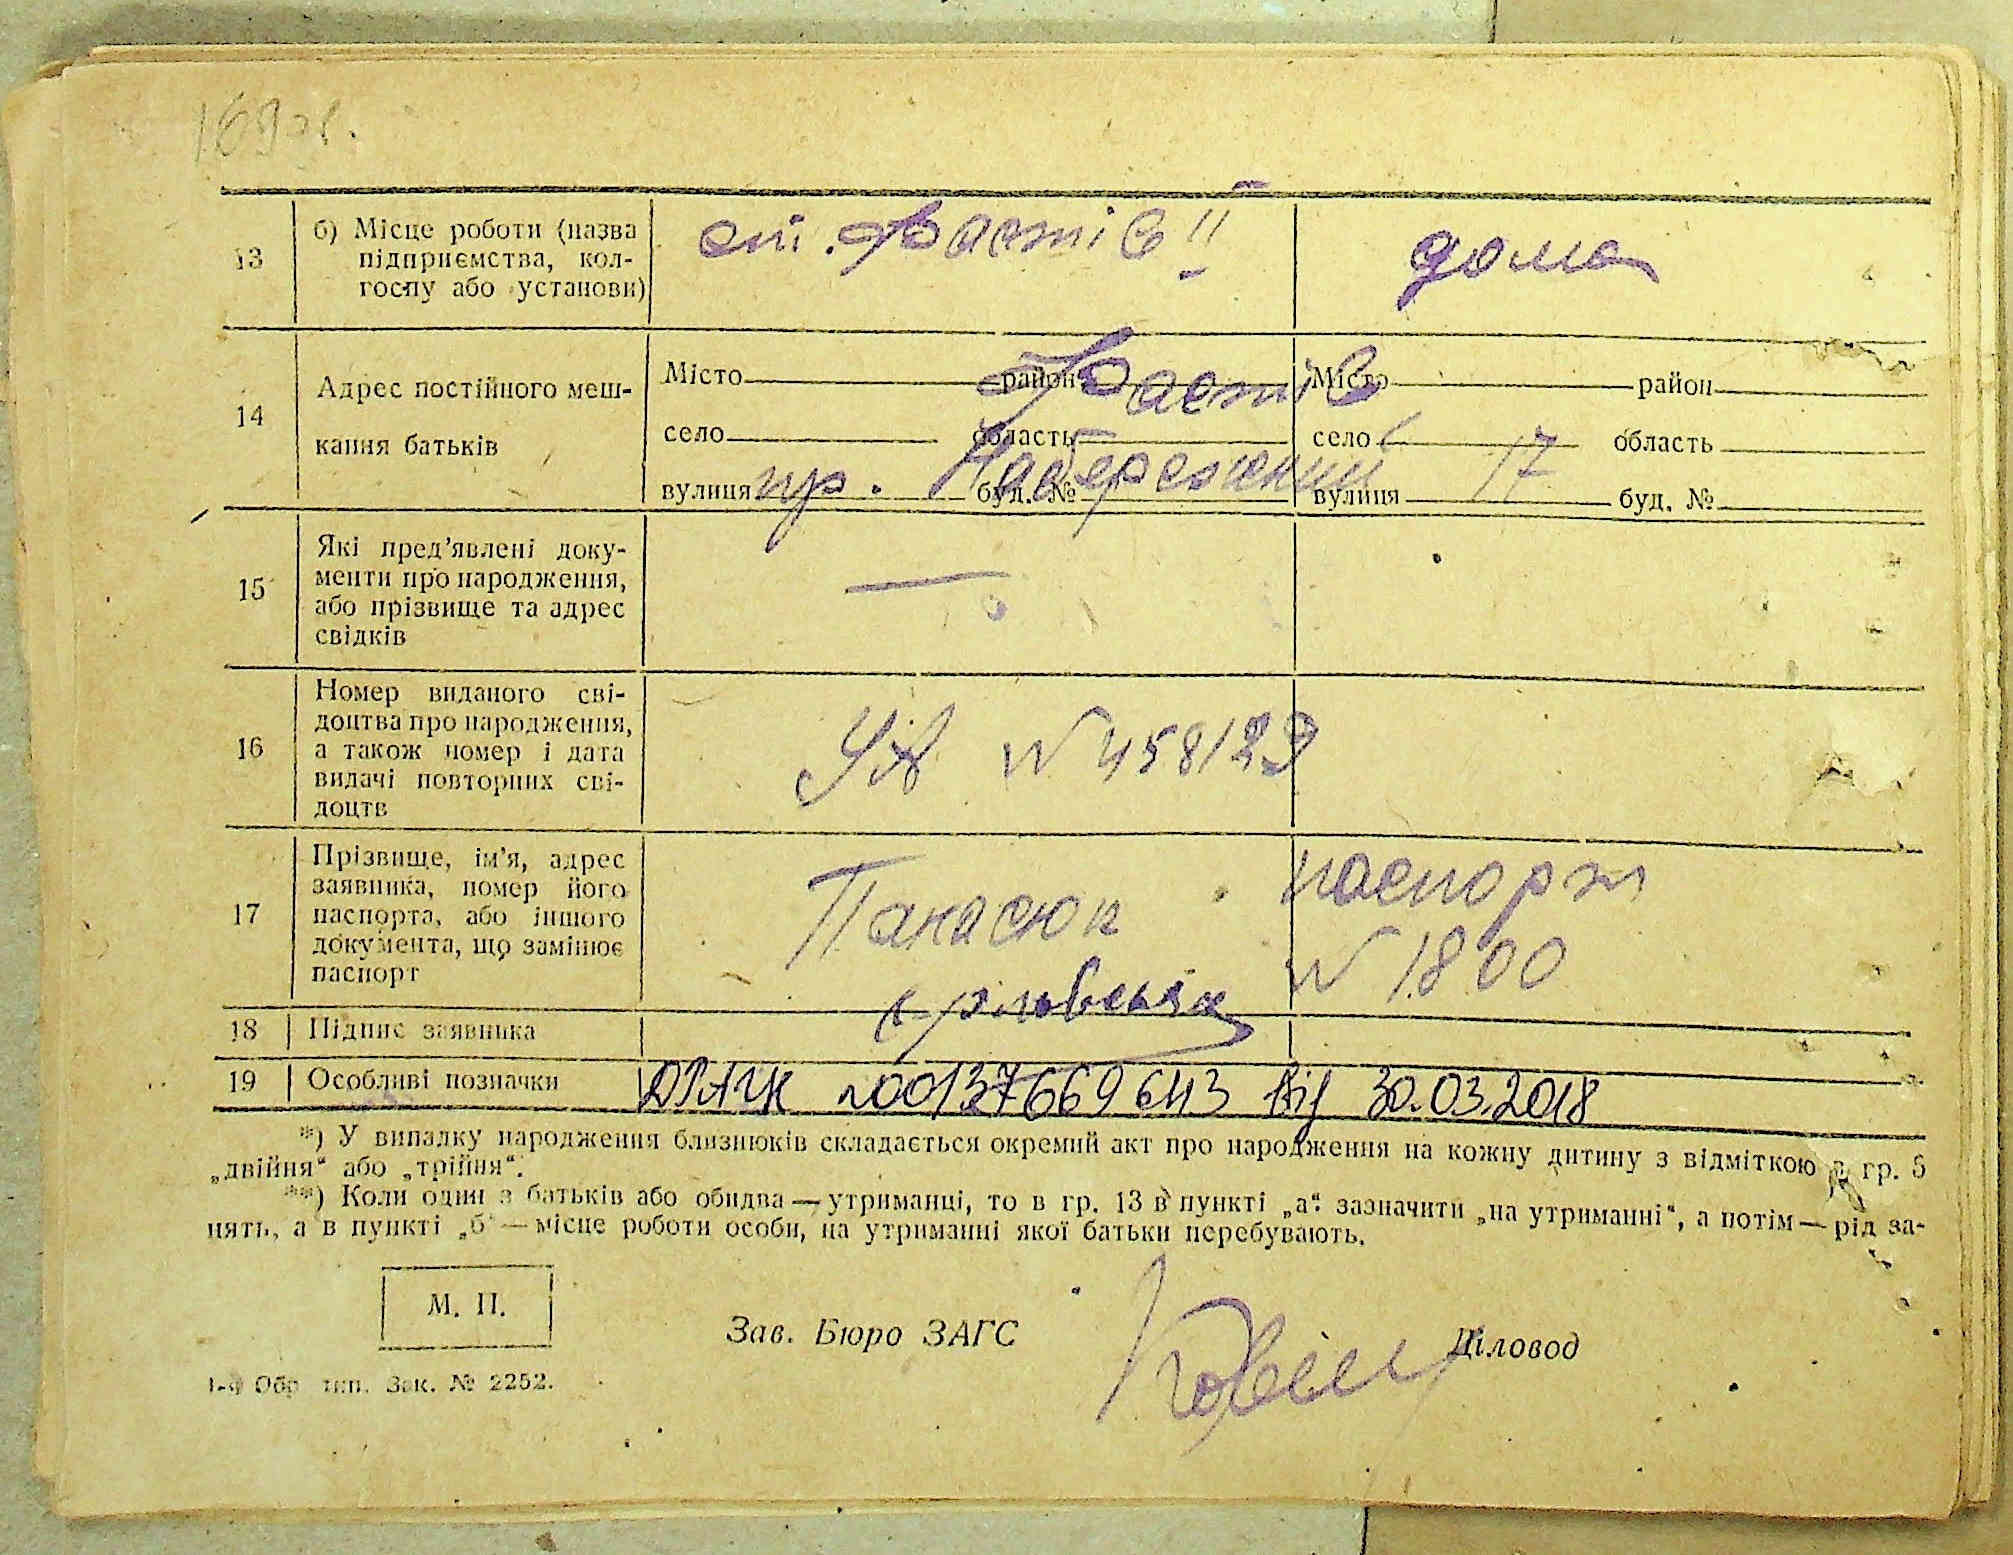 169 зв.
13 б) Місце роботи (назва підприємства, колгоспу або установи) ст. Фастів II дома
14 Адрес постійного мешкання батьків
Місто район Місто район
Фастів
село область село область
вулиця буд. № вулиця буд. №
пр. Набережний 17
15 Які пред’явлені доку-
менти про народження,
або прізвище та адрес
свідків
—
16 Номер виданого сві-
доцтва про народження,
а також номер і дата
видачі повторних сві-
доцтв
УА № 458129
17 Прізвище, ім’я, адрес
заявника, номер його
паспорта, або іншого
документа, що замінює
паспорт
Панасюк паспорт
№ 1800
18 Підпис заявника
19 Особливі позначки ДРАЦС №00137669643 від 30.03.2018
*) У випадку народження близнюків складається окремий акт про народження на кожну дитину з відміткою в гр. 5
„двійня“ або „трійня“.
**) Коли один з батьків або обидва — утриманці, то в гр. 13 в пункті „а“ зазначити „на утриманні“, а потім — рід за-
нять, а в пункті „б“ — місце роботи особи, на утриманні якої батьки перебувають.
М. П.
Зав. Бюро ЗАГС Діловод
1-а Обр. тип. Зак. № 2252.